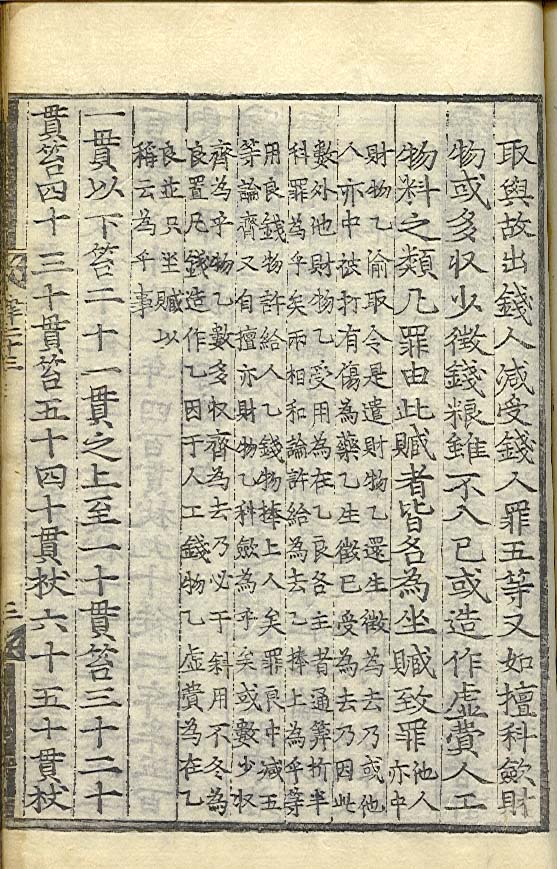 取與故出錢人減受錢人罪五等又如擅科歛財
物或多収少徵錢粮雖不入己或造作虛費人工
物料之類凡罪由此贓者皆各為坐贓致罪
他人
亦中
財物乙渝取令是遣財物乙還生徵為去乃或他
人亦中被打有傷為藥乙生徵已受為去乃因此
數外他財物乙受用為在乙良各主者通筭折半
科罪為乎矣兩相和論許給為去乙捧上為乎等
用良錢物許給人乙錢物捧上人矣罪良中減五
等論齊又自擅亦財物乙科歛為乎矣或數少収
齊為乎物乙數多収齊為去乃必于斜用不冬為
良置凡錢造作乙因于人工錢物乙虛費為在乙
良並只坐贓以
稱云為乎事
一貫以下笞二十一貫之上至一十貫笞三十二十
貫笞四十 三十貫笞五十四十貫杖六十 五十貫杖